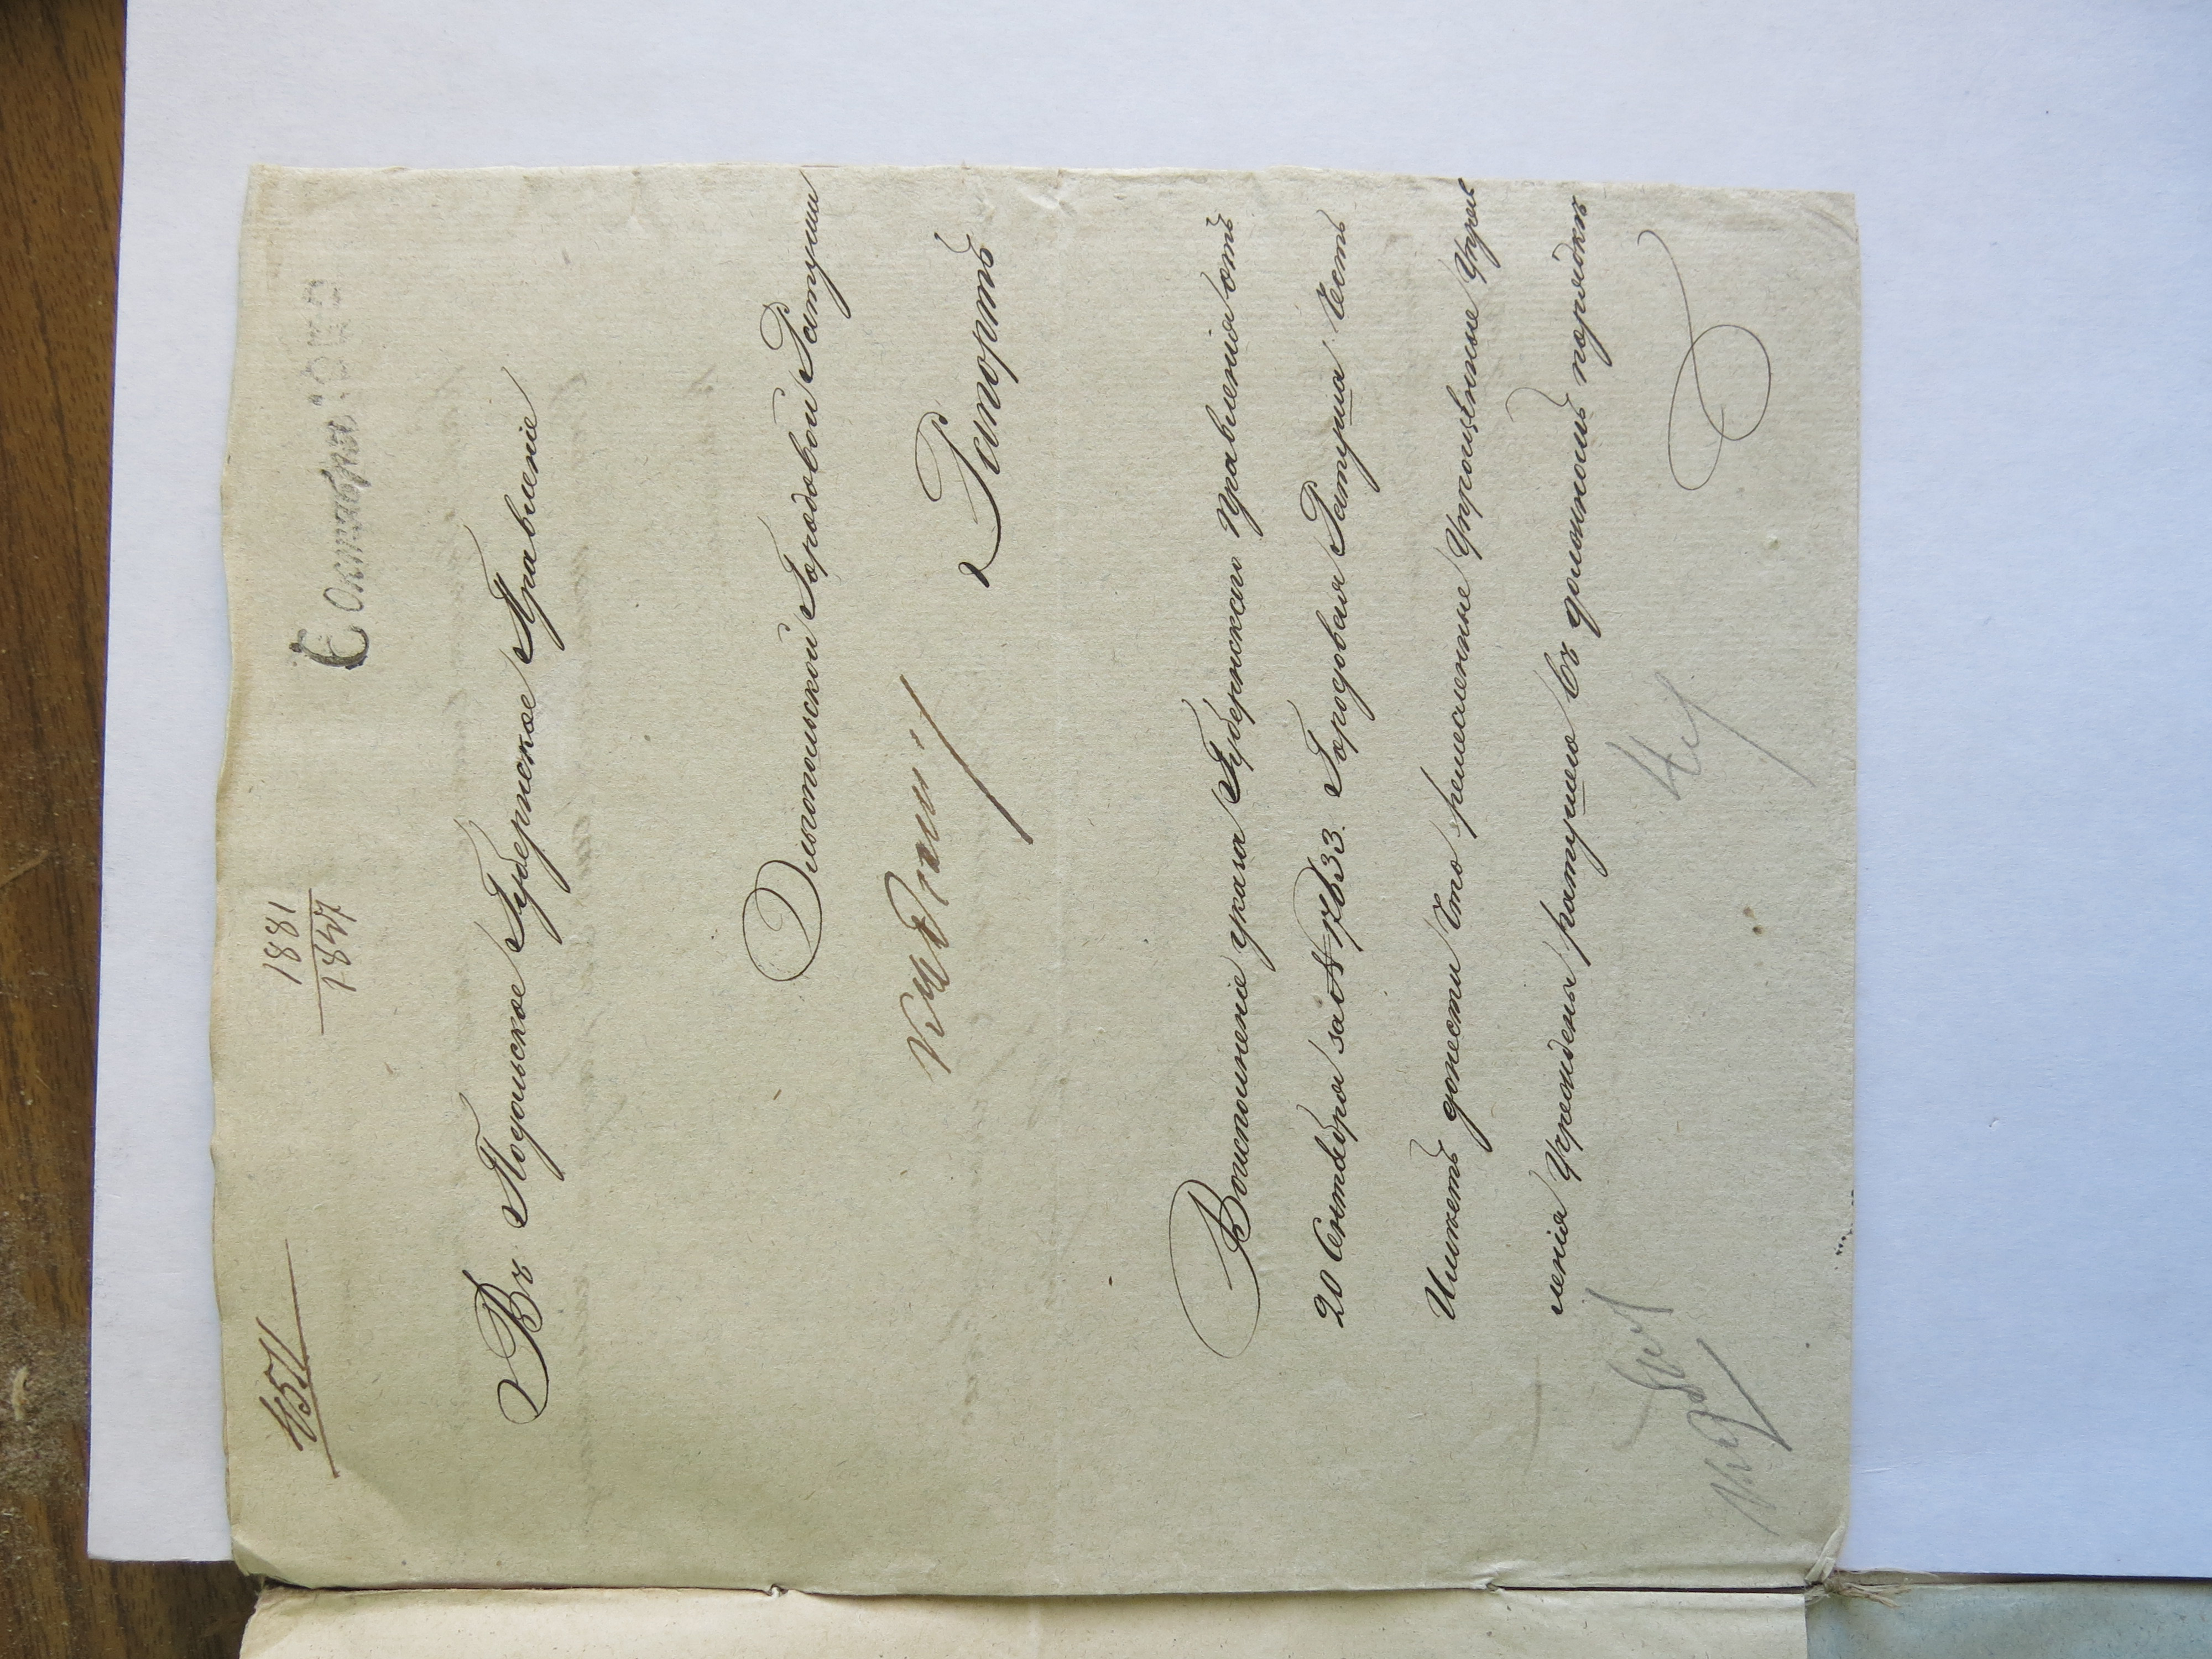 4511
1881
1847
6 Октября
Въ Подольское Губернское Правленіе
Ольгопольской Городовой Ратуши
Рапортъ
Воисполненіе указа Губернскаго Правленія отъ
20 Сентября за № 17633. Городовая Ратуша Честь
Имѣетъ донести Что ремесленные Упрощенные Управ
ленія Учреждены ратушею въ должномъ порядкѣ